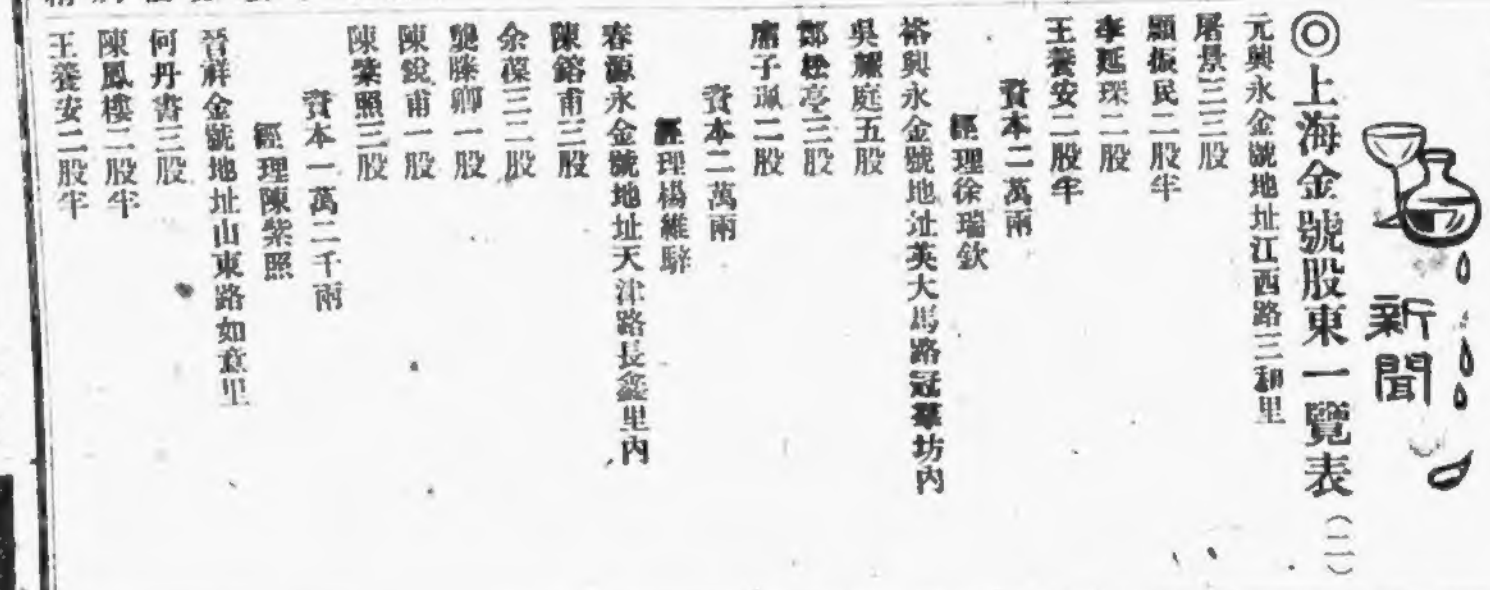 新聞
◎上海金號股東一覽表（二）
元興永金號地址江西路三和里
屠景三三股
顧振民二股半
李延琛二股
王養安二股半
資本二萬兩
經理徐瑞欽
裕興永金號地址英大馬路冠羣坊內
吳耀庭五股
鄭松亭三股
席子珮二股
資本二萬兩
經理楊維駢
春源永金號地址天津路長鑫里內
陳鎔甫三股
余葆三二股
滕卿一股
陳銳甫一股
陳紫照三股
資本一萬二千兩
經理陳紫照
晉祥金號地址山東路如意里
何丹書三股
陳鳳樓二股半
王養安二股半